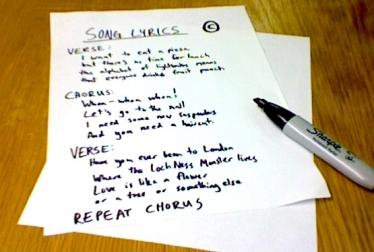 SONG LYRICS ©
VERSE:
I want to eat a pizza
but there's no time for lunch
the alphabet of lightbulbs means
that everyone drinks fruit punch
CHORUS:
Whoa-whoa whoa!
Let's go to the mall
I need some new suspenders
And you need a haircut.
VERSE:
Have you ever been to London
Where the Loch Ness Monster lives
Love is like a flower
or a tree or something else
REPEAT CHORUS
Sharpie